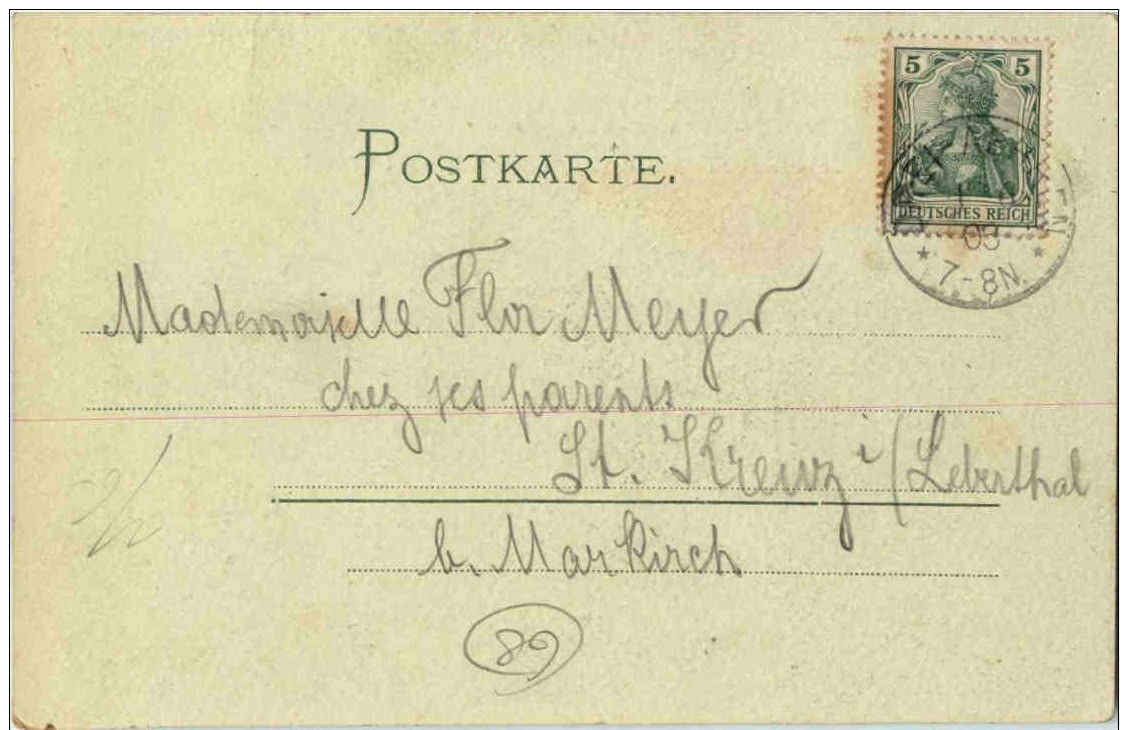 5 5
DEUTSCHES REICH
POSTKARTE.
7-8N.
Mademoiselle Flor Meyer
chez ses parents
St. Kreuz i/Leberthal
b. Markirch
89